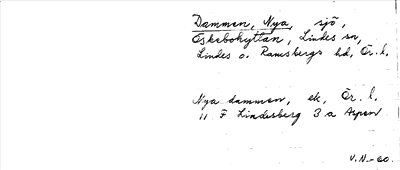 Dammen, Nya, sjö,
Öskebohyttan, Lindes sn,
Lindes o. Ramsbergs hd, Ör. l.
Nya dammen, ek, Ör. l.
11 F Lindesberg 3 a Aspen
V.N.-60.